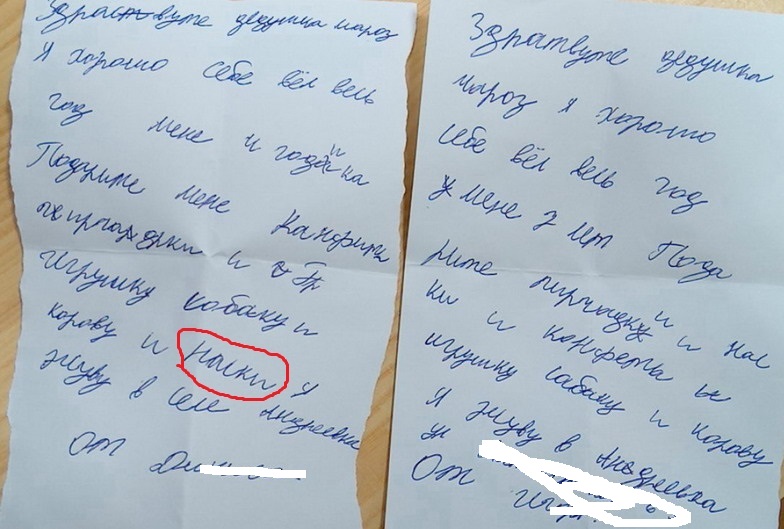 Здраствуте дедушка мароз
Я хорошо себе вёл весь
год мене и годика
Подарите мене Канфиты
и
игрушку собаку и
корову и Наски Я
жуву в селе Андреевка
От
Здратвуте дедушка
мароз я хорошо
себе вёл весь год
у мене 7 лет Пода
рите пирчадки и Нас
ки и конфеты и
игрушку сабаку и корову
Я жуву в Андреевка
От